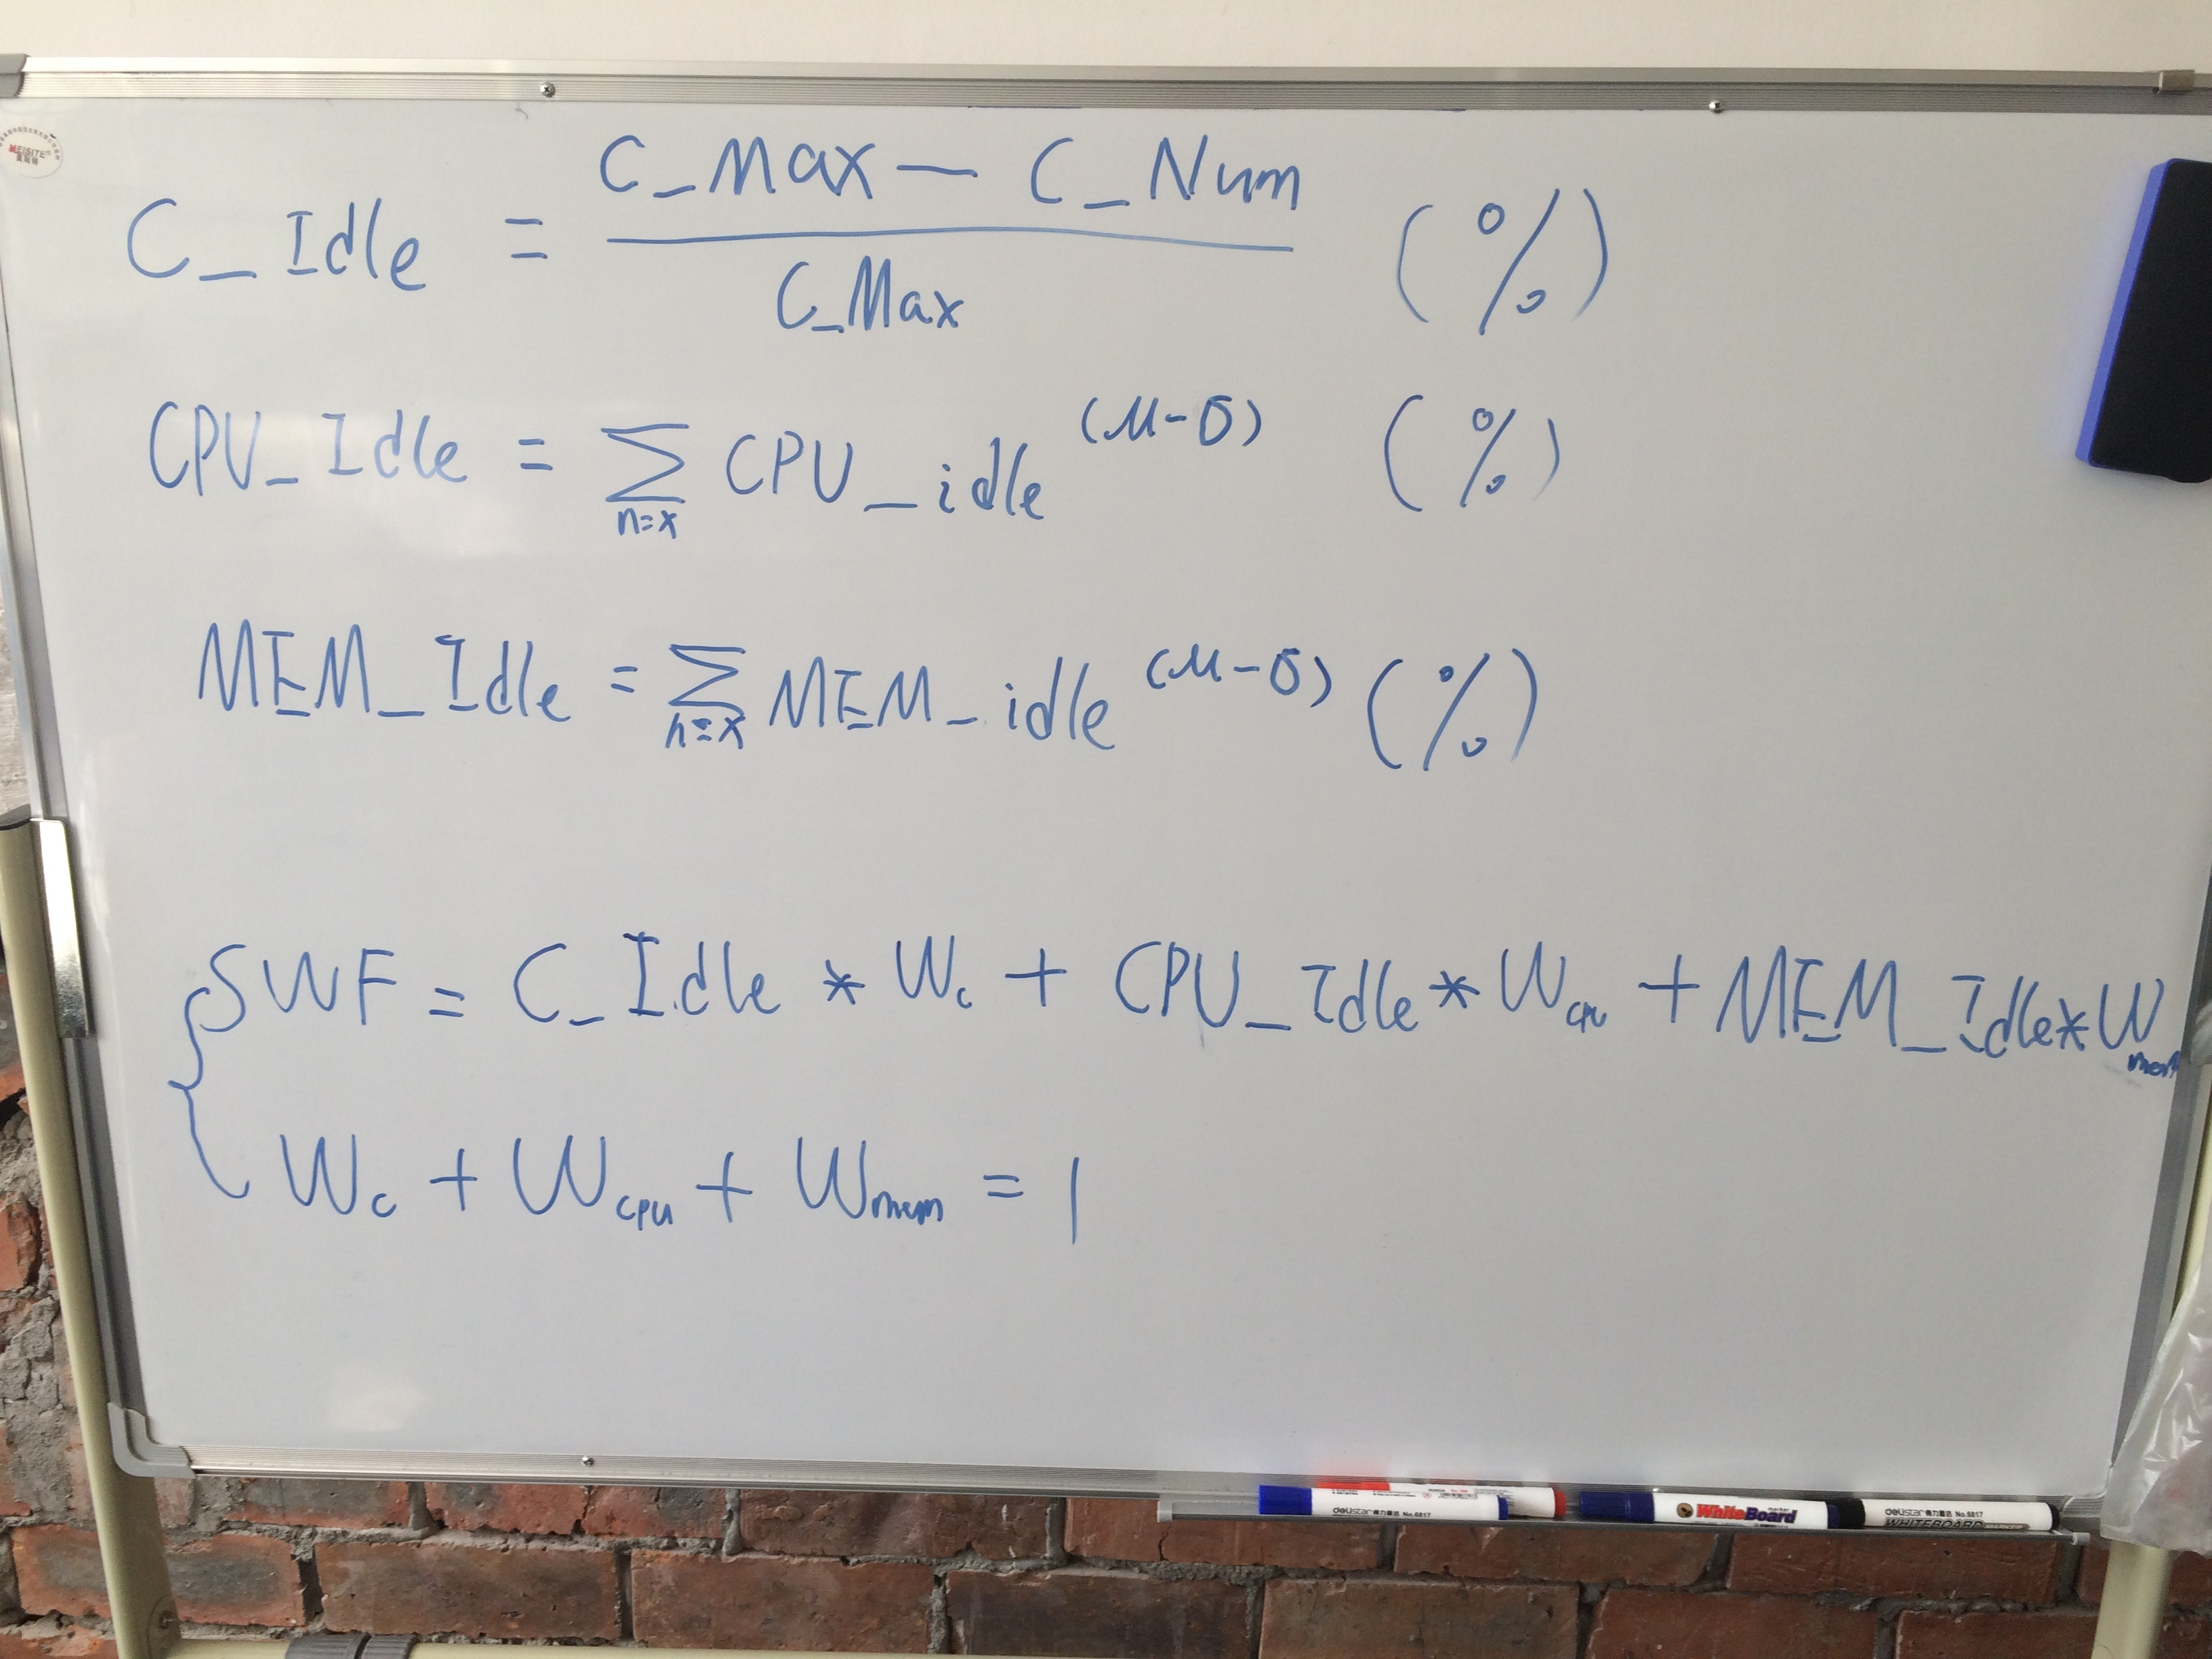 MEISITE
C_Idle = (C_Max — C_Num) / C_Max (%)
CPU_Idle = ∑ n=x CPU_idle^(μ-σ) (%)
MEM_Idle = ∑ n=x MEM_idle^(μ-σ) (%)
SWF = C_Idle * Wc + CPU_Idle * Wcpu + MEM_Idle * Wmem
Wc + Wcpu + Wmem = 1
delistar得力星达 No.6817
WhiteBoard marker
delistar得力星达 No.6817
WHITEBOARD